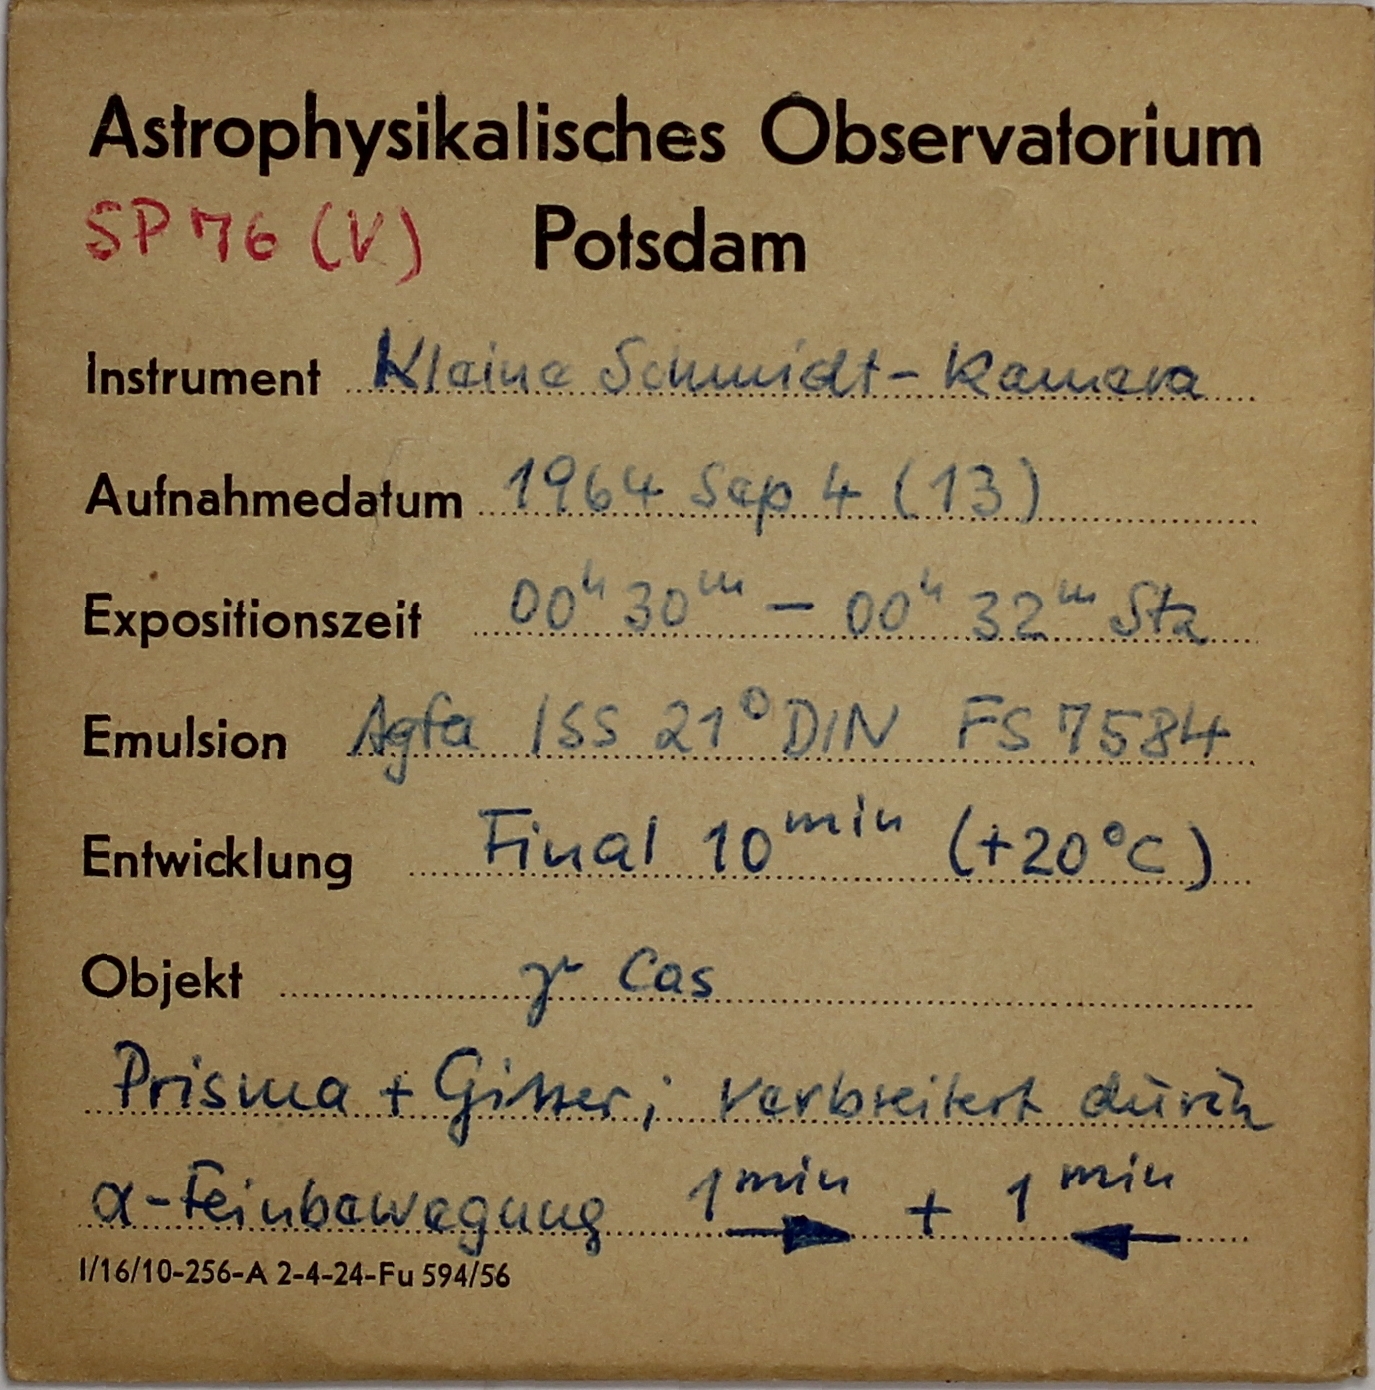 Astrophysikalisches Observatorium
SP 76 (V) Potsdam
Instrument Kleine Schmidt-Kamera
Aufnahmedatum 1964 Sep 4 (13)
Expositionszeit 00ʰ 30ᵐ – 00ʰ 32ᵐ Stz
Emulsion Agfa ISS 21° DIN FS 7584
Entwicklung Final 10ᵐⁱⁿ (+20°C)
Objekt γ Cas
Prisma + Gitter; verbreitert durch
α-Feinbewegung 1ᵐⁱⁿ → + 1ᵐⁱⁿ ←
I/16/10-256-A 2-4-24-Fu 594/56